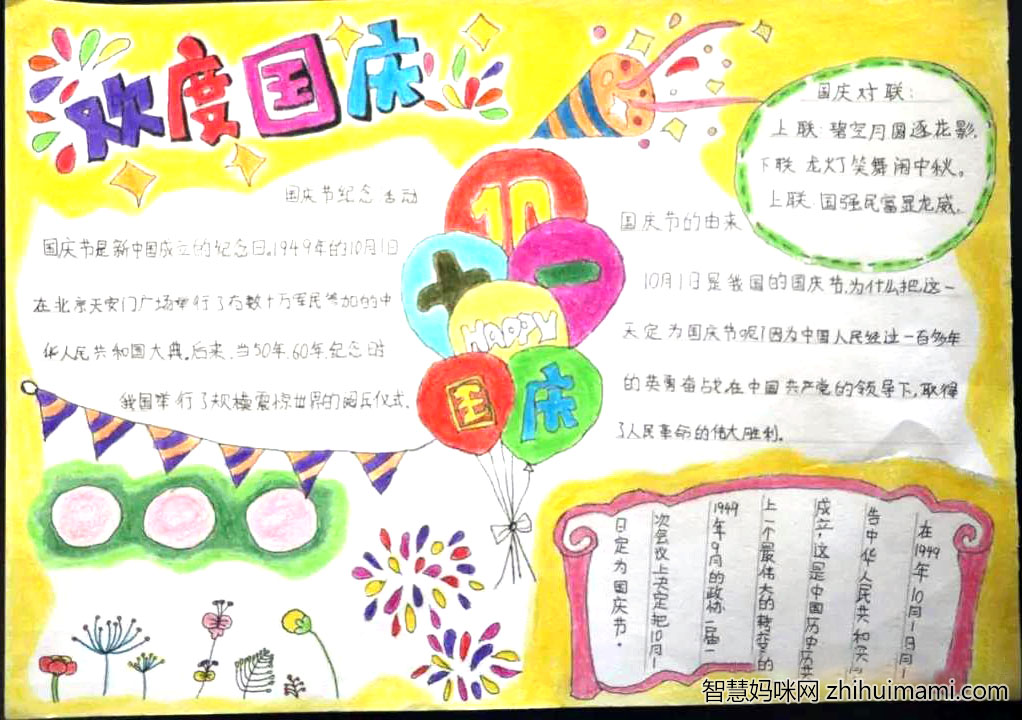 欢度国庆
国庆节纪念活动
国庆节是新中国成立的纪念日。1949年的10月1日
在北京天安门广场举行了有数十万军民参加的中
华人民共和国大典。后来，当50年、60年纪念时
我国举行了规模震惊世界的阅兵仪式。
10
HAPPY
国庆
国庆对联：
上联：碧空月圆逐花影，
下联：龙灯笑舞闹中秋。
上联：国强民富显龙威，
国庆节的由来
10月1日是我国的国庆节，为什么把这一
天定为国庆节呢？因为中国人民经过一百多年
的英勇奋战，在中国共产党的领导下，取得
了人民革命的伟大胜利。
在1949年10月1日
告中华人民共和
成立，这是中国历史
上一个最伟大的转变的
1949年9月的政协一届一
次会议上决定把10月1
日定为国庆节。
智慧妈咪网 zhihuimami.com